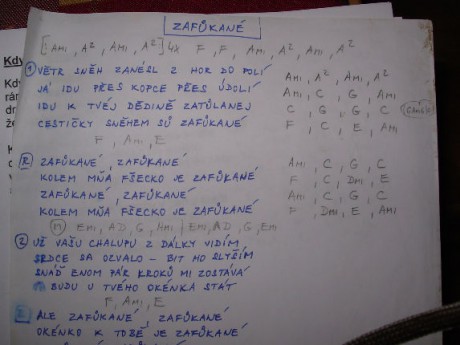 ZAFŮKANÉ
[: Ami, A², Ami, A² :] 4x F, F, Ami, A², Ami, A²
① VĚTR SNĚH ZANÉSL Z HOR DO POLÍ Ami, A², Ami, A²
JÁ IDU PŘES KOPCE PŘES ÚDOLÍ Ami, C, G, Ami
IDU K TVÉJ DĚDINĚ ZATÚLANEJ C, G, G, C
CESTIČKY SNĚHEM SÚ ZAFÚKANÉ F, C, E, Ami
F, Ami, E
R. ZAFŮKANÉ, ZAFŮKANÉ Ami, C, G, C
KOLEM MŇA FŠECKO JE ZAFŮKANÉ F, C, Dmi, E
ZAFŮKANÉ, ZAFŮKANÉ Ami, C, G, C
KOLEM MŇA FŠECKO JE ZAFŮKANÉ F, Dmi, E, Ami
Emi, AD, G, Hmi / Emi, AD, G, Emi
② UŽ VAŠU CHALUPU Z DÁLKY VIDÍM
SRDCE SA OZVALO - BIT HO SLYŠÍM
SNÁĎ ENOM PÁR KROKŮ MI ZOSTÁVÁ
BUDU U TVÉHO OKÉNKA STÁT
F, Ami, E
ALE ZAFŮKANÉ, ZAFŮKANÉ
OKÉNKO K TOBĚ JE ZAFŮKANÉ